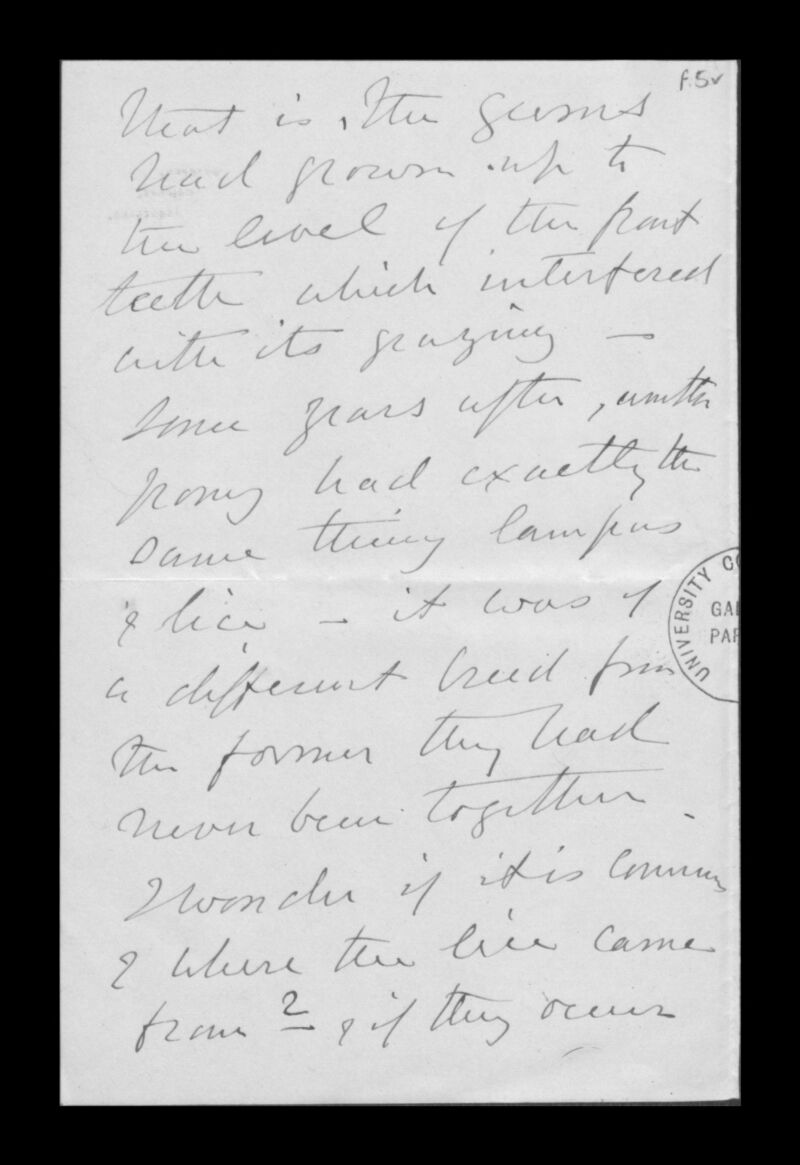 f.5v
that is, the gums
had grown up to
the level of the front
teeth which interfered
with its grazing —
some years after, another
pony had exactly the
same thing lampas
& lice — it was of
a different breed from
the former they had
never been together.
I wonder if it is common
& where the lice came
from ? & if they occur
UNIVERSITY CO
GAL
PAP